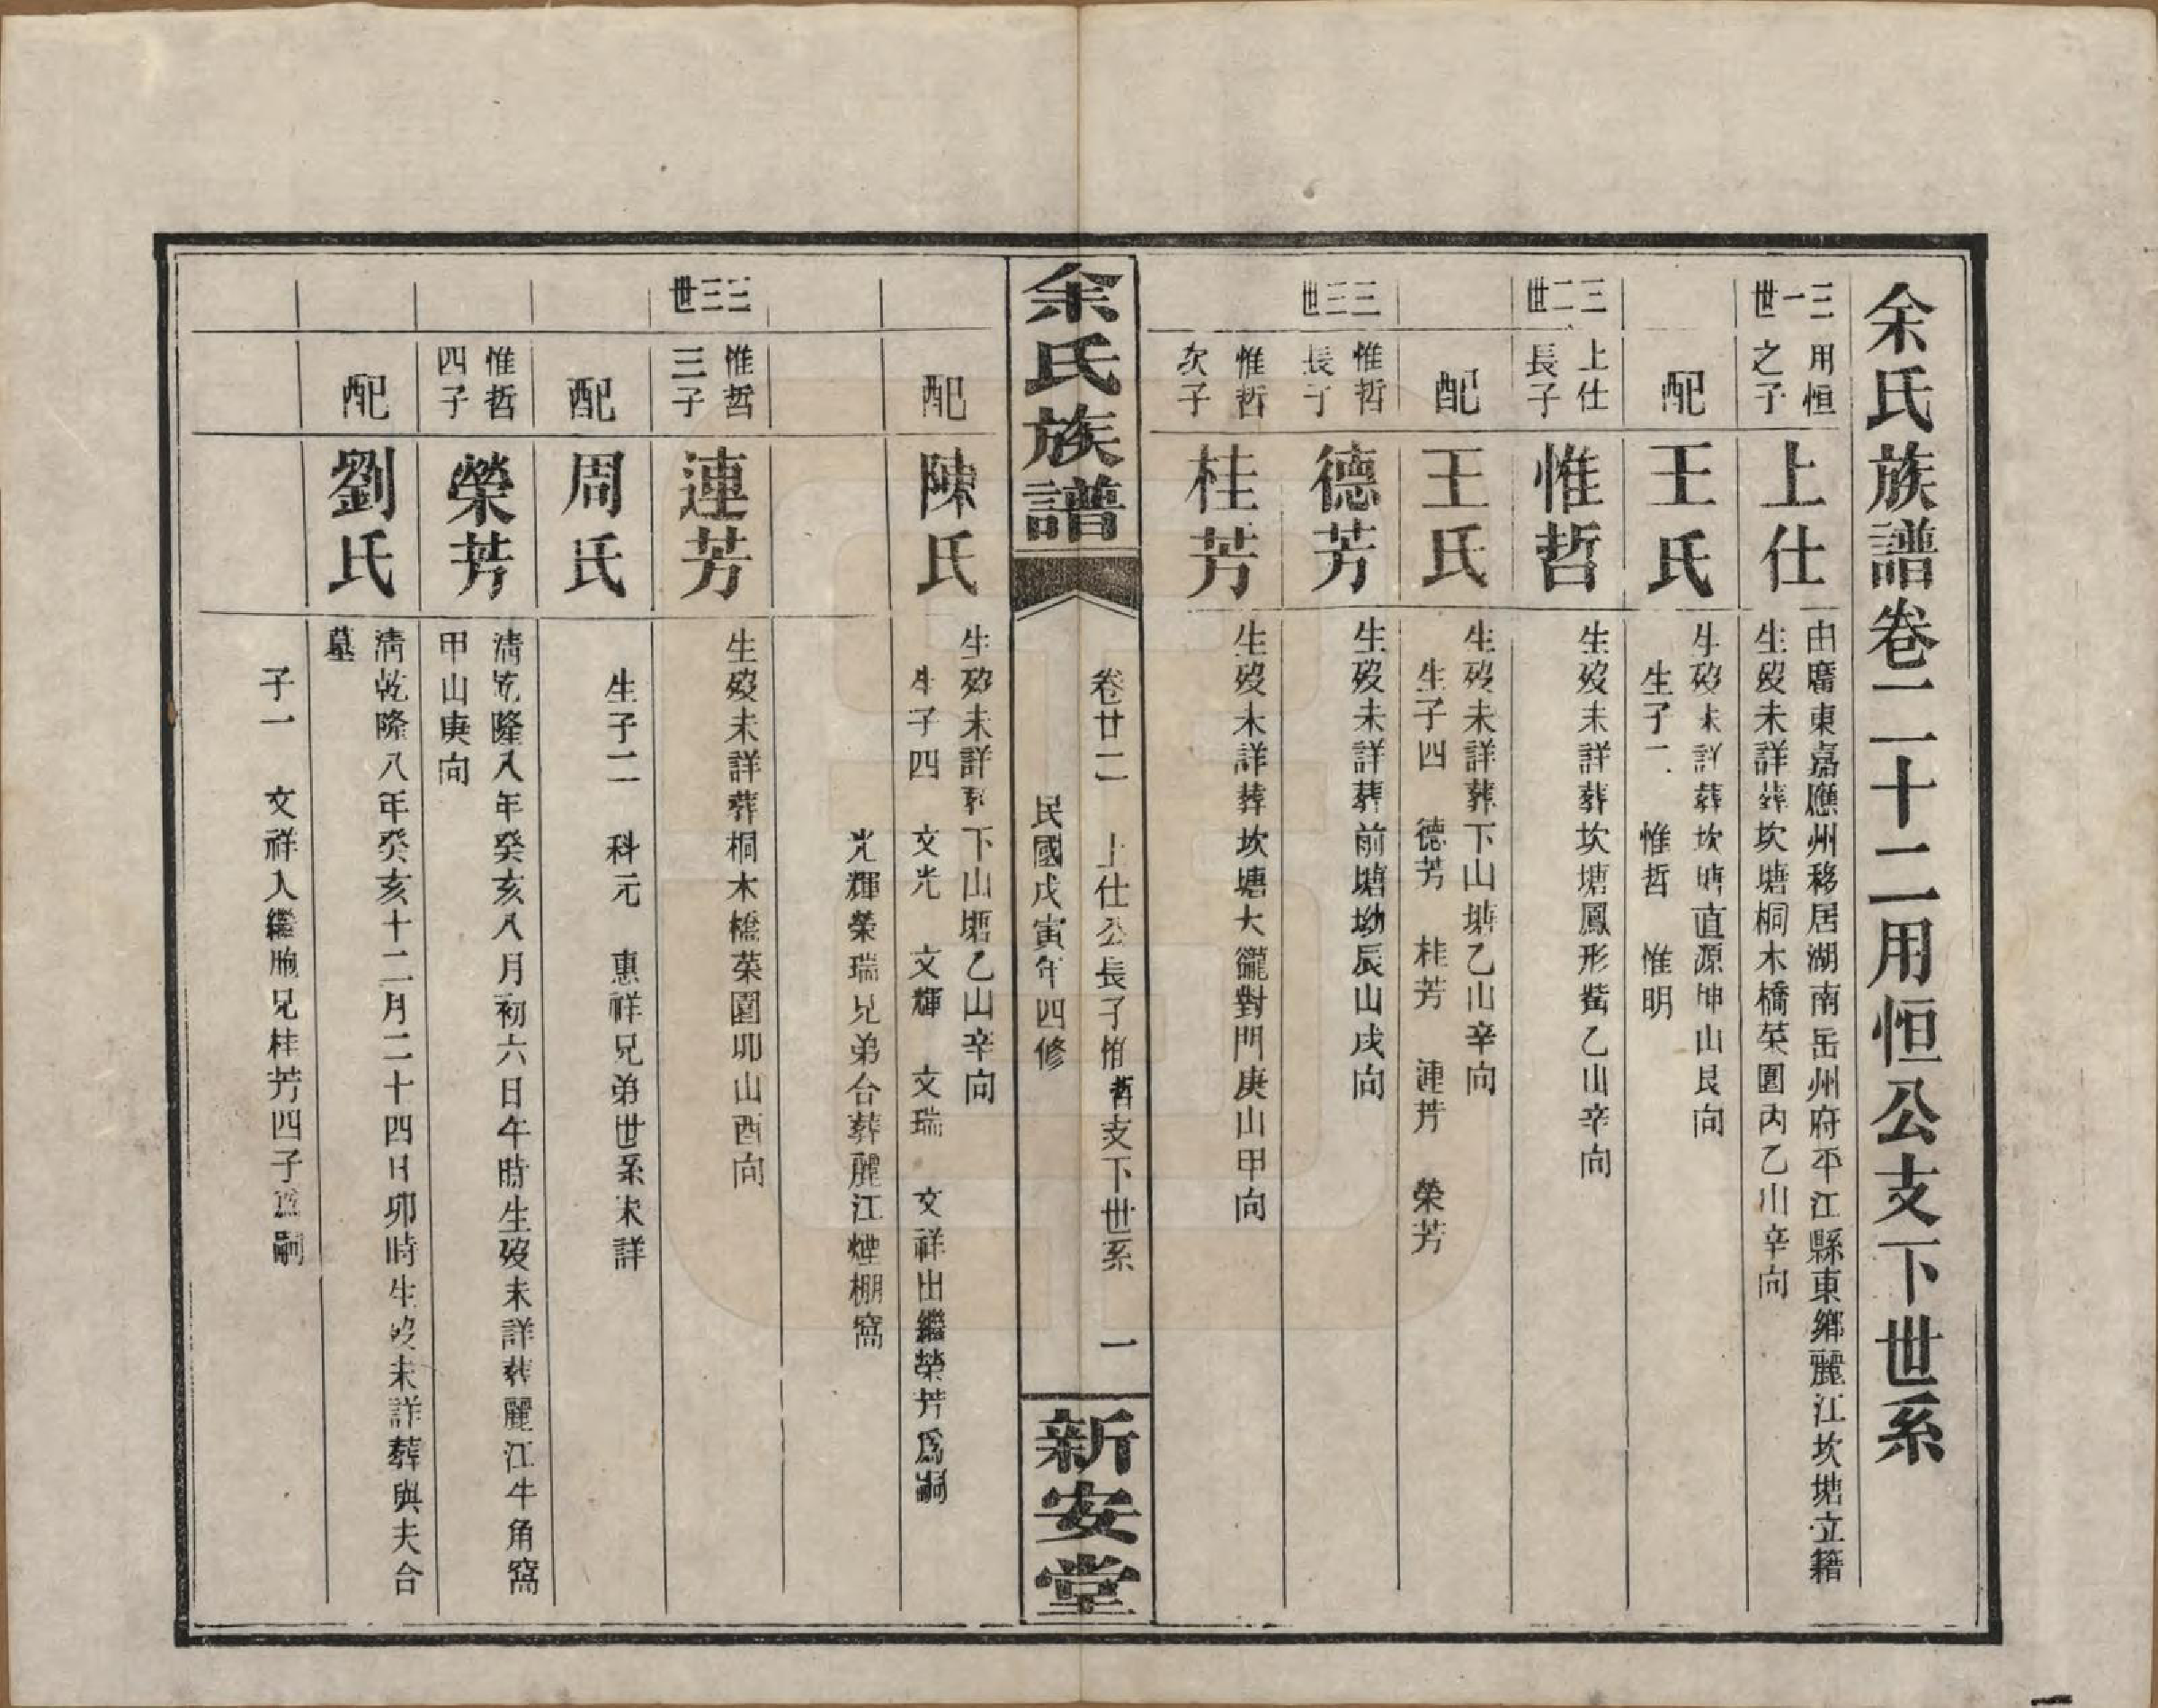 余氏族譜卷二十二用恒公支下世系
三一世
用恒
之子
上仕
由廣東嘉應州移居湖南岳州府平江縣東鄉麗江坎塘立籍
生歿未詳葬坎塘桐木橋菜園內乙山辛向
配
王氏
生歿未詳葬坎塘直源坤山艮向
生子二 惟哲 惟明
三二世
上仕
長子
惟哲
生歿未詳葬坎塘鳳形嘴乙山辛向
配
王氏
生歿未詳葬下山塘乙山辛向
生子四 德芳 桂芳 連芳 榮芳
三三世
惟哲
長子
德芳
生歿未詳葬前塘坳辰山戌向
惟哲
次子
桂芳
生歿未詳葬坎塘大巃對門庚山甲向
余氏族譜
卷廿二 上仕公長子惟哲支下世系 一
民國戊寅年四修
新安堂
配
陳氏
生歿未詳葬下山塘乙山辛向
生子四 文光 文輝 文瑞 文祥出繼榮芳爲嗣
光輝榮瑞兄弟合葬麗江煙棚窩
三三世
惟哲
三子
連芳
生歿未詳葬桐木橋菜園卯山酉向
配
周氏
生子二 科元 惠祥兄弟世系未詳
惟哲
四子
榮芳
清乾隆八年癸亥八月初六日午時生歿未詳葬麗江牛角窩
甲山庚向
配
劉氏
清乾隆八年癸亥十二月二十四日卯時生歿未詳葬與夫合
墓
子一 文祥入繼胞兄桂芳四子爲嗣